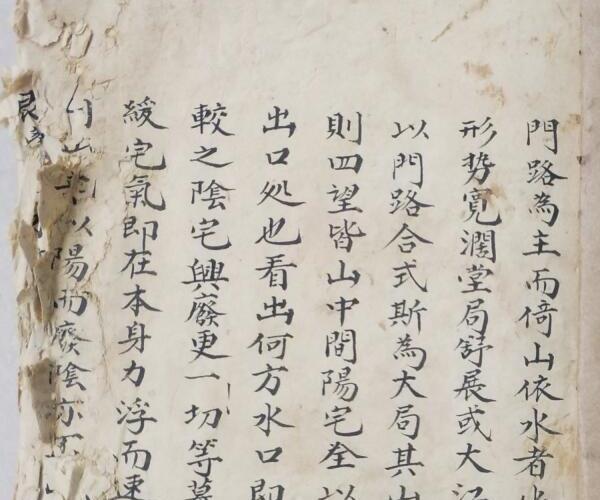 門路為主而倚山依水者
形势寬濶堂局舒展或大江
以門路合式斯為大局其山
則四望皆山中間陽宅全以
出口処也看出何方水口即
較之陰宅興廢更一切等墓
緩宅氣即在本身力浮而速
以陽而廢陰亦
艮